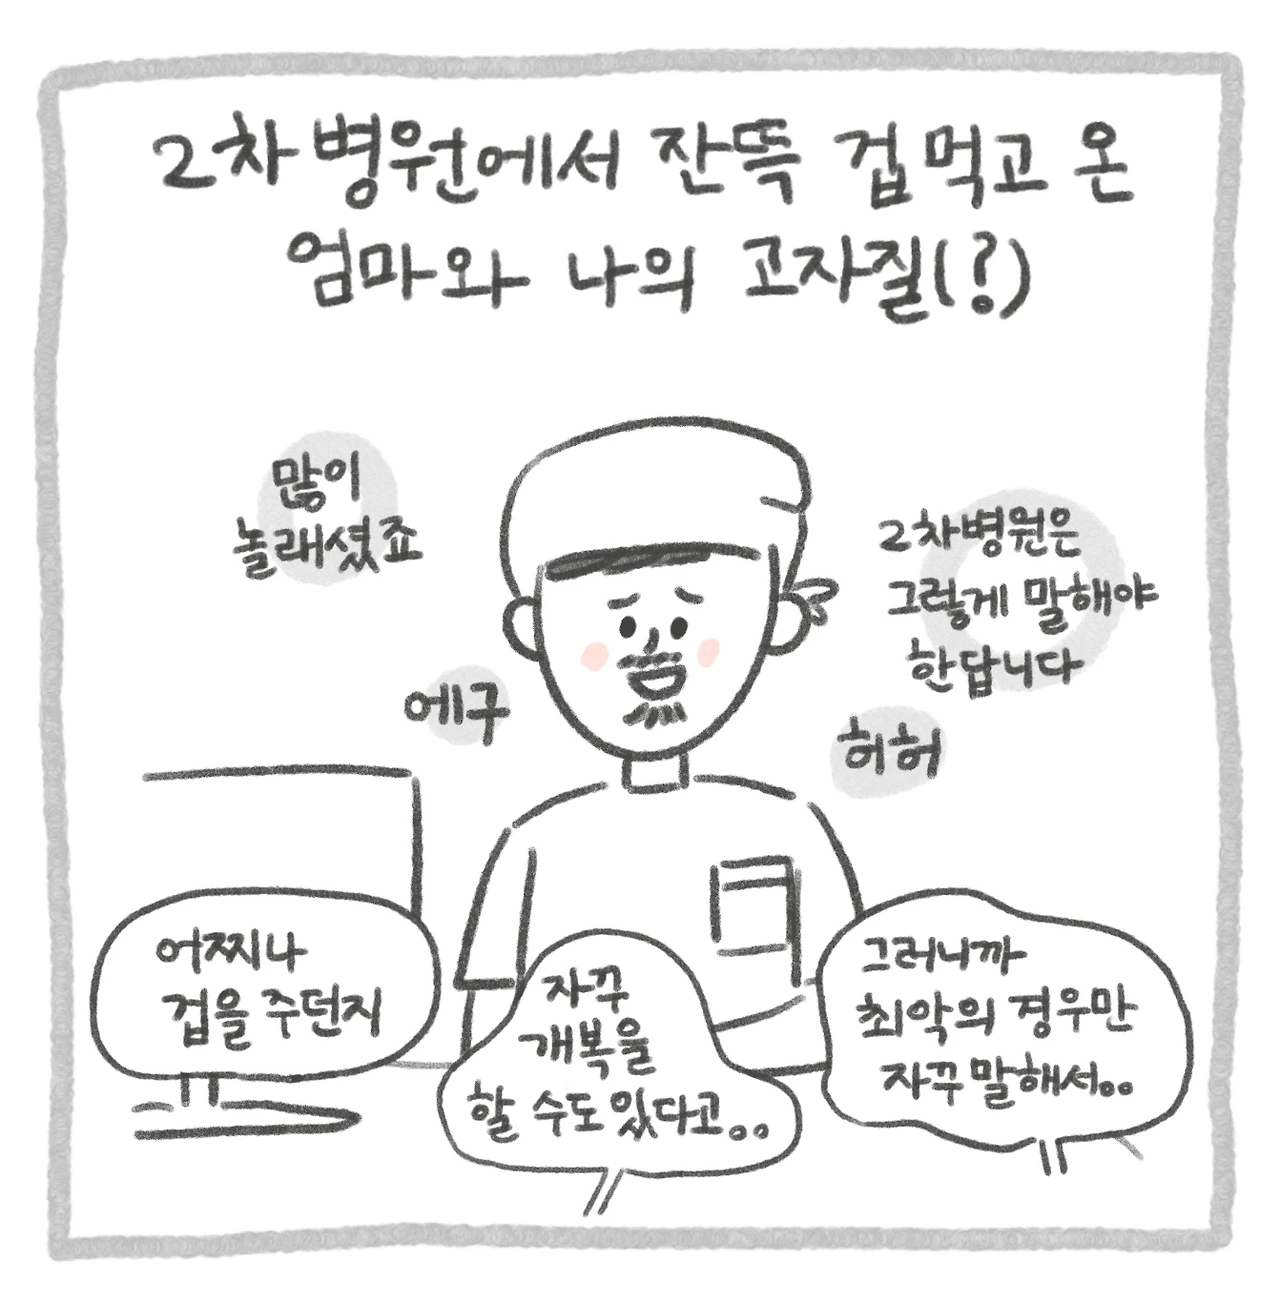 2차병원에서 잔뜩 겁먹고 온
엄마와 나의 고자질(?)
많이
놀래셨죠
2차병원은
그렇게 말해야
한답니다
에구
허허
어찌나
겁을 주던지
자꾸
개복을
할 수도 있다고..
그러니까
최악의 경우만
자꾸 말해서..